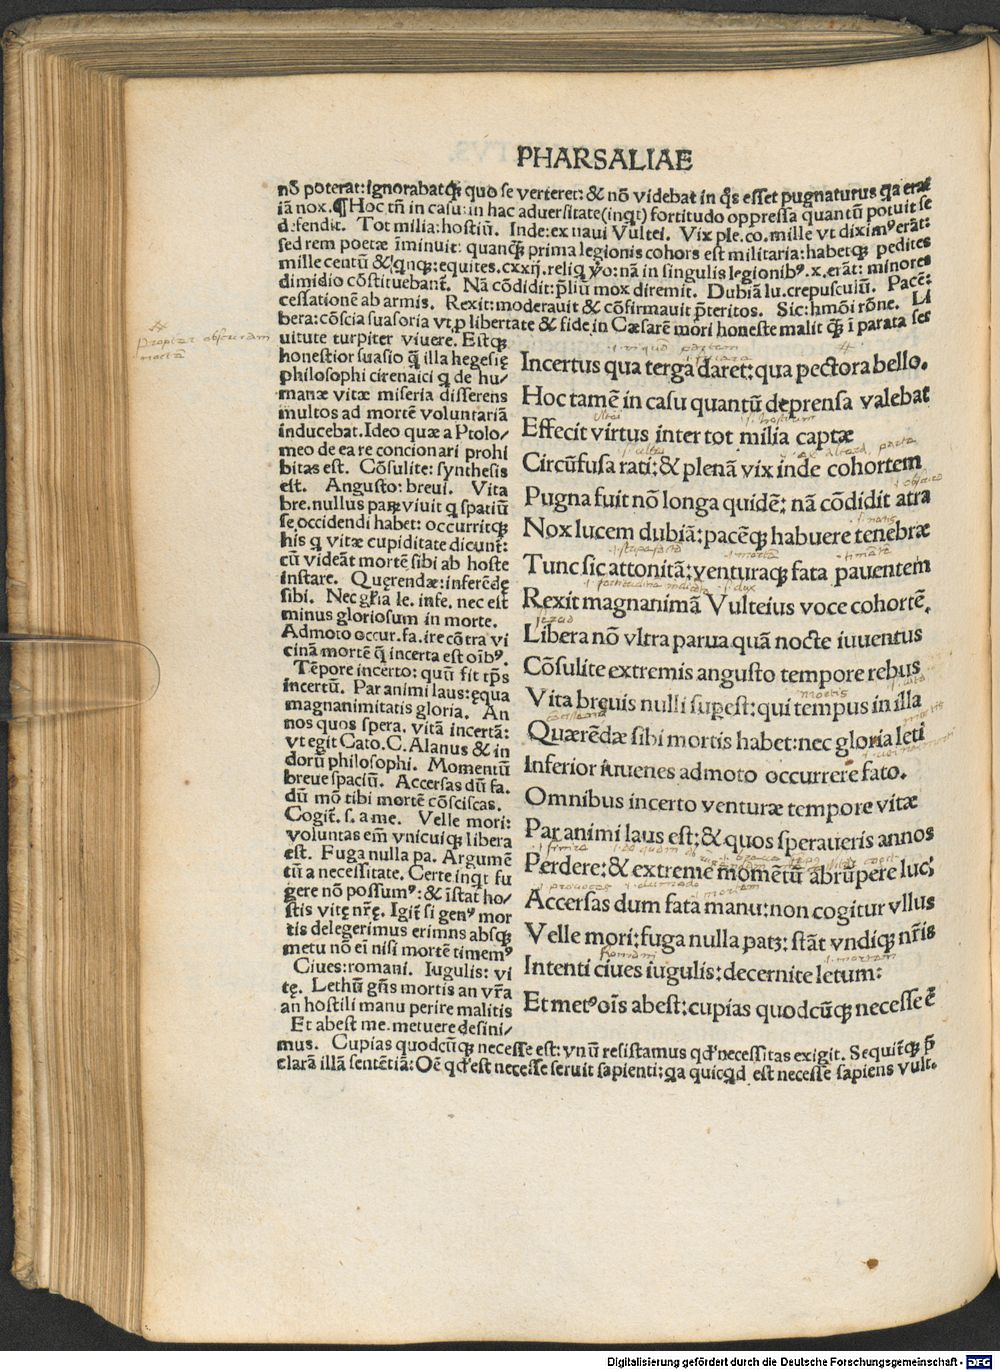 PHARSALIAE
nō poterat: ignorabatqȝ quo se verteret: & nō videbat in q̄s esset pugnaturus qa erat
iā nox. ¶ Hoc tn̄ in casu: in hac aduersitate (inqt) fortitudo oppressa quantū potuit se
defendit. Tot milia: hostiū. Inde: ex naui Vultei. Vix ple. co. mille vt diximꝰ erāt:
sed rem poetæ īminuit: quanqȝ prima legionis cohors est militaria: habetqȝ pedites
mille centū & qnqȝ: equites. cxxij. reliq ỽo: nā in singulis legionibꝰ .x. erāt: minores
dimidio cōstituebant̄. Nā cōdidit: p̄liū mox diremit. Dubiā lu. crepusculū. Pacē:
cessationē ab armis. Rexit: moderauit & cōfirmauit p̄teritos. Sic: hmōi rōne. Li
bera: cōscia suasoria vt p libertate & fide in Cæsarē mori honeste malit q̄ȝ ī parata ser
uitute turpiter viuere. Estqȝ
honestior suasio q̄ illa hegesię
philosophi cirenaici q de hu/
manæ vitæ miseria disserens
multos ad mortē voluntariā
inducebat. Ideo quæ a Ptolo/
meo de ea re concionari prohi
bitas est. Cōsulite: synthesis
est. Angusto: breui. Vita
bre. nullus parꝝ viuit q spatiū
se occidendi habet: occurritqȝ
his q vitæ cupiditate dicunt:
cū videāt mortē sibi ab hoste
instare. Querendæ: inferēdę
sibi. Nec gl̄ia le. infe. nec est
minus gloriosum in morte.
Admoto occur. fa. ire cōtra vi
cinā mortē q̄ incerta est oībꝰ.
Tēpore incerto: quū sit tp̄s
incertū. Par animi laus: ęqua
magnanimitatis gloria. An
nos quos spera. vitā incertā:
vt egit Cato. C. Alanus & in
dorū philosophi. Momentū
breue spaciū. Accersas dū fa.
dū mō tibi mortē cōsciscas.
Cogit̄. s. a me. Velle mori:
voluntas em̄ vnicuiqȝ libera
est. Fuga nulla pa. Argumē
tū a necessitate. Certe inqt fu
gere nō possumꝰ: & īstat ho/
stis vitę nr̄ę. Igit̄ si genꝰ mor
tis delegerimus erimns absqȝ
metu nō ei nisi mortē timemꝰ
Ciues: romani. Iugulis: vi
tę. Lethū gn̄s mortis an vr̄a
an hostili manu perire malitis
Et abest me. metuere desini/
mus. Cupias quodcūqȝ necesse est: vnū resistamus qd' necessitas exigit. Sequit̄qȝ p̄
clarā illā sentētiā: Oē qd' est necesse seruit sapienti: qa quicqd est necesse sapiens vult.
Propter obscuram
noctā
Incertus qua terga daret: qua pectora bello.
Hoc tamē in casu quantū deprensa valebat
Effecit virtus inter tot milia captæ
Circūfusa rati: & plenā vix inde cohortem
Pugna fuit nō longa quidē: nā cōdidit atra
Nox lucem dubiā: pacēqȝ habuere tenebræ
Tunc sic attonitā: venturaqȝ fata pauentem
Rexit magnanimā Vulteius voce cohortē.
Libera nō vltra parua quā nocte iuuentus
Cōsulite extremis angusto tempore rebus
Vita breuis nulli supest: qui tempus in illa
Quærēdæ sibi mortis habet: nec gloria leti
Inferior iuuenes admoto occurrere fato.
Omnibus incerto venturæ tempore vitæ
Par animi laus est: & quos speraueris annos
Perdere: & extremę momētū abrūpere luc;
Accersas dum fata manu: non cogitur vllus
Velle mori: fuga nulla patȝ: stāt vndiqȝ nr̄is
Intenti ciues iugulis: decernite letum:
Et metꝰ oīs abest: cupias quodcūqȝ necesse ē
Digitalisierung gefördert durch die Deutsche Forschungsgemeinschaft - DFG